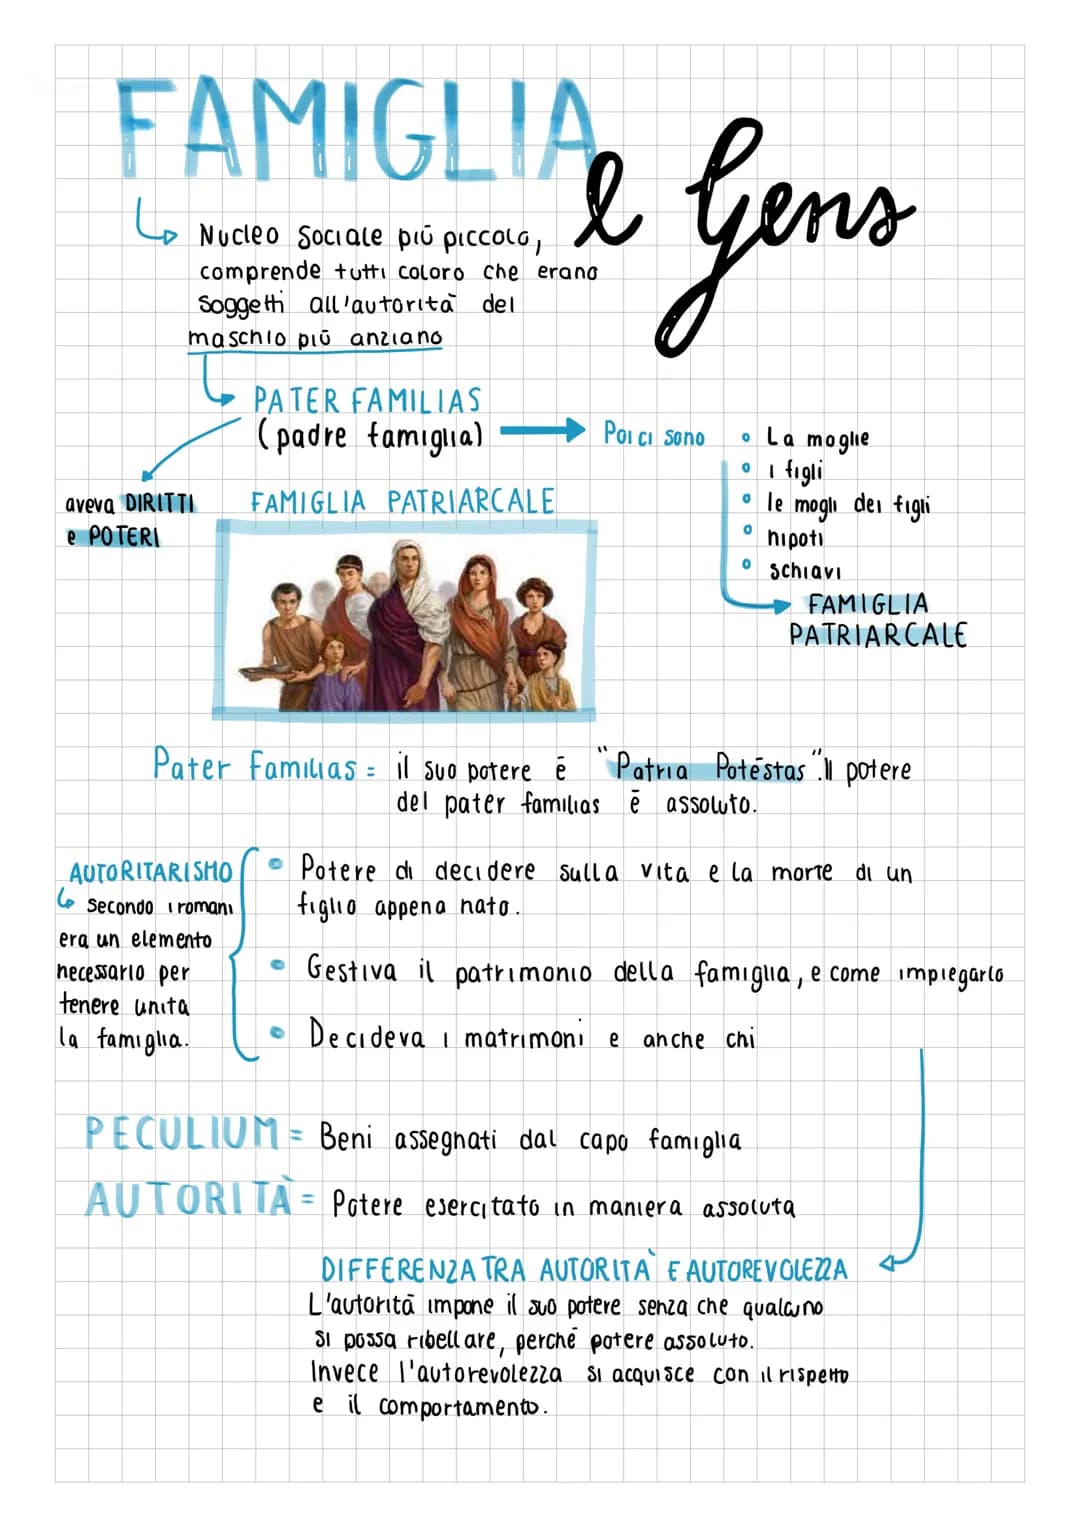 FAMIGLIA
e Gens
Nucleo Sociale più piccolo,
comprende tutti coloro che erano
soggetti all'autorità del
maschio più anziano
PATER FAMILIAS
(padre famiglia)
Poi ci sono
La moglie
i figli
le mogli dei figli
nipoti
schiavi
FAMIGLIA
PATRIARCALE
aveva DIRITTI
e POTERI
FAMIGLIA PATRIARCALE
Pater Familias = il suo potere è "Patria Potéstas". Il potere
del pater familias è assoluto.
AUTORITARISMO
Secondo i romani
era un elemento
necessario per
tenere unita
la famiglia.
Potere di decidere sulla vita e la morte di un
figlio appena nato.
Gestiva il patrimonio della famiglia, e come impiegarlo
Decideva i matrimoni e anche chi
PECULIUM = Beni assegnati dal capo famiglia
AUTORITÀ = Potere esercitato in maniera assoluta
DIFFERENZA TRA AUTORITÀ E AUTOREVOLEZZA
L'autorità impone il suo potere senza che qualcuno
si possa ribellare, perché potere assoluto.
Invece l'autorevolezza si acquisce con il rispetto
e il comportamento.